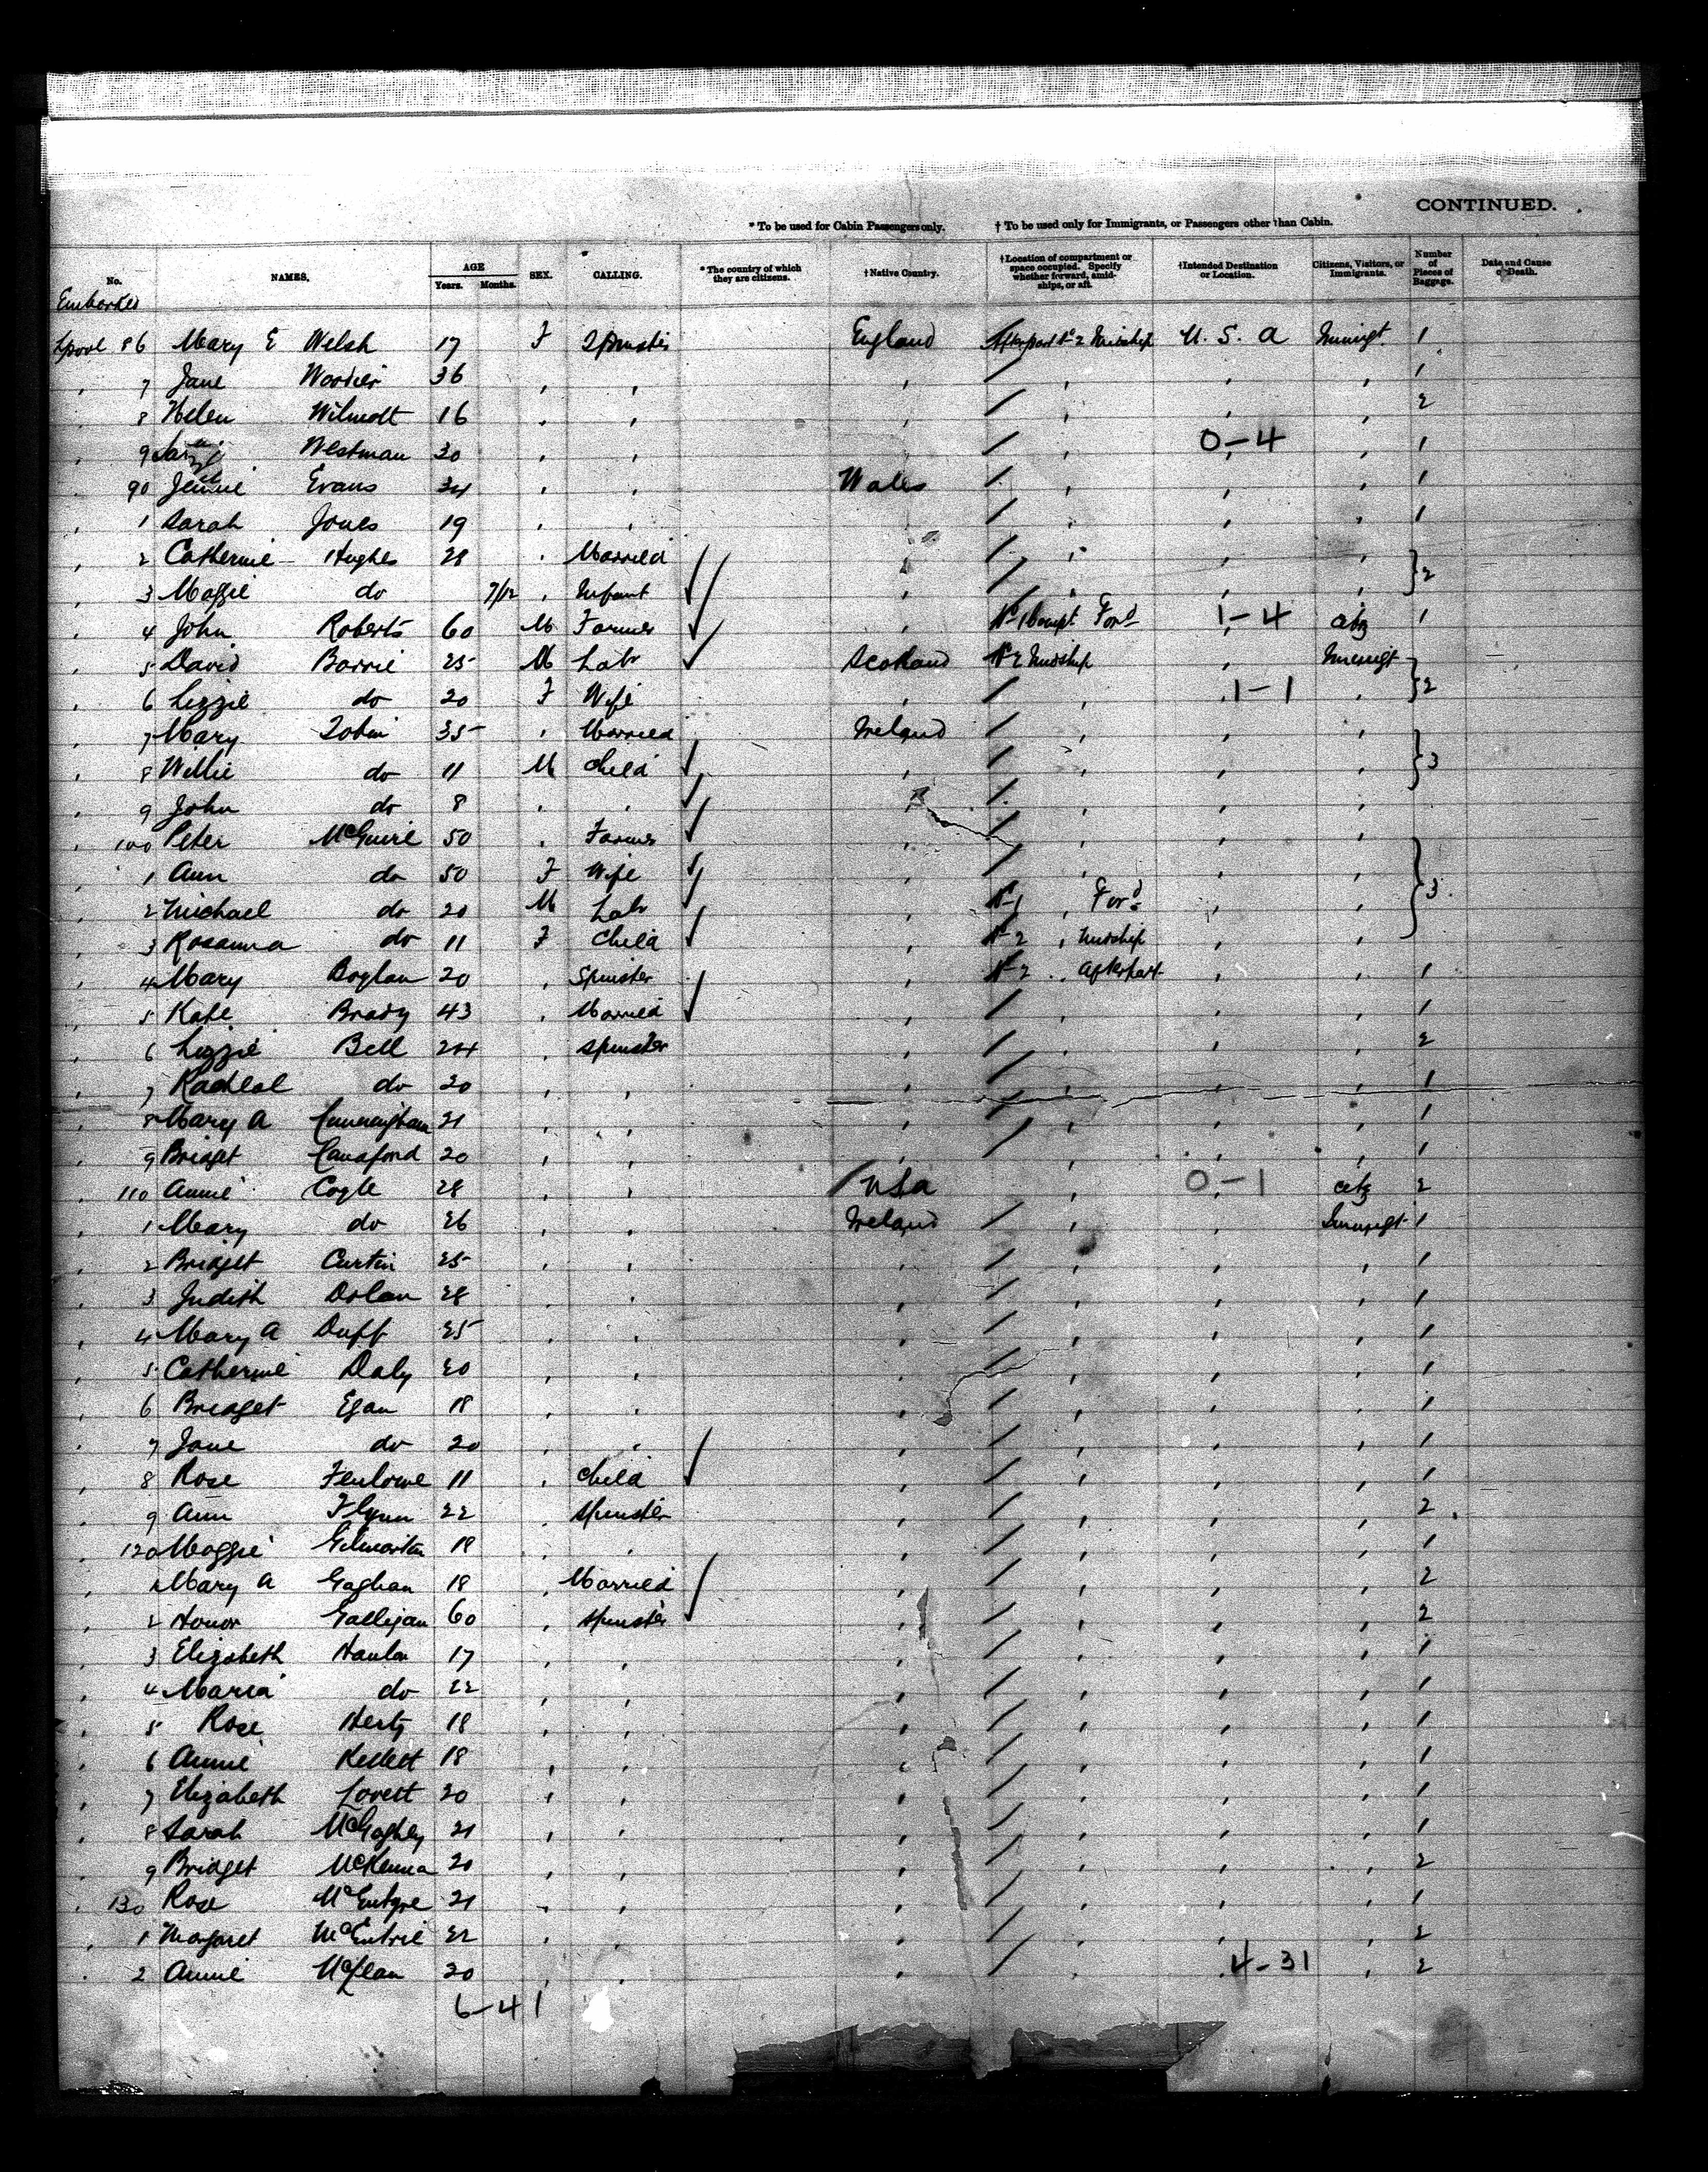 CONTINUED.
* To be used for Cabin Passengers only. † To be used only for Immigrants, or Passengers other than Cabin.
No. NAMES. AGE Years. Months. SEX. CALLING. * The country of which they are citizens. † Native Country. † Location of compartment or space occupied. Specify whether forward, amidships, or aft. † Intended Destination or Location. Citizens, Visitors, or Immigrants. Number of Pieces of Baggage. Date and Cause of Death.
Embarked
Lpool 86 Mary E Welsh 17 F Spinster England Afterpart No 2 Midship U.S.A Immigt. 1
" 7 Jane 36 " " " / " " " 1
" 8 Helen Wilmott 16 " " " / " " " 2
" 9 Westman 30 " " " / " 0-4 " 1
" 90 Evans 34 " " Wales / " " " 1
" 1 Sarah Jones 19 " " " / " " " 1
" 2 Catherine Hughes 28 " Married " / " " " } 2
" 3 Maggie do 7/12 " Infant " / " " "
" 4 John Roberts 60 M Farmer " No 1 Compt Ford 1-4 citz 1
" 5 David Barrie 25 M Lab Scotland No 2 Midship " Immigt } 2
" 6 Lizzie do 20 F Wife " / " 1-1 "
" 7 Mary Tobin 35 " Married Ireland / " " " } 3
" 8 Willie do 11 M Child " / " " "
" 9 John do 8 " " " / " " "
" 100 Peter McGuire 50 " Farmer " / " " " } 3
" 1 Ann do 50 F Wife " / " " "
" 2 Michael do 20 M Lab " No 1 " Ford " "
" 3 Rosanna do 11 F Child " No 2 " Midship " "
" 4 Mary Boylan 20 " Spinster " No 2 " Afterpart " " 1
" 5 Kate Brady 43 " Married " / " " " 1
" 6 Lizzie Bell 24 " Spinster " / " " " 2
" 7 Racheal do 20 " " " / " " " 1
" 8 Mary A Cunningham 21 " " " / " " " 1
" 9 Bridget 20 " " " / " " " 1
" 110 Annie Coyle 28 " " USA " 0-1 citz 2
" 1 Mary do 26 " " Ireland / " " Immigt 1
" 2 Bridget Curtin 25 " " " / " " " 1
" 3 Judith Dolan 28 " " " / " " " 1
" 4 Mary A Duff 25 " " " / " " " 1
" 5 Catherine Daly 20 " " " / " " " 1
" 6 Bridget Egan 18 " " " / " " " 1
" 7 Jane do 20 " " " / " " " 1
" 8 Rose 11 " Child " / " " " 1
" 9 Ann Flynn 22 " Spinster " / " " " 2
" 120 Maggie Gilmartin 18 " " " / " " " 1
" 1 Mary A Gaghan 18 " Married " / " " " 2
" 2 Honor Galligan 60 " Spinster " / " " " 2
" 3 Elizabeth Hanlon 17 " " " / " " " 1
" 4 Maria do 22 " " " / " " " 1
" 5 Rose 18 " " " / " " " 1
" 6 Annie Kellett 18 " " " / " " " 1
" 7 Elizabeth Lovett 20 " " " / " " " 1
" 8 Sarah McGaghey 21 " " " / " " " 1
" 9 Bridget McKenna 20 " " " / " " " 2
" 130 Rose McEntyre 21 " " " / " " " 1
" 1 Margaret McEntrie 22 " " " / " " " 2
" 2 Annie McLean 20 " " " / " 4-31 " 2
6-41